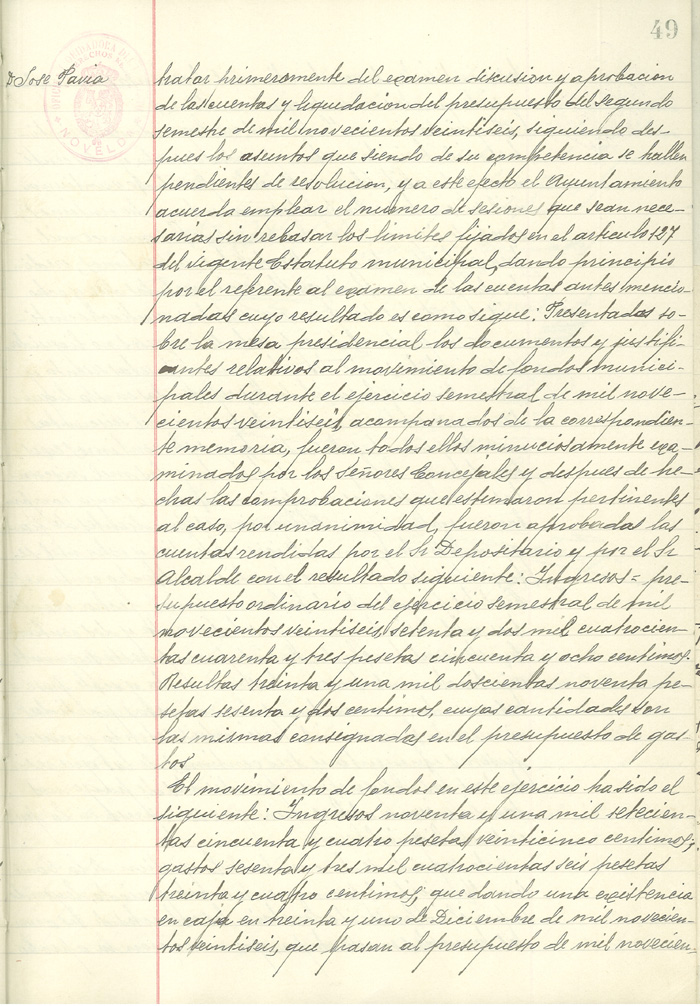 49
D. Jose Pavia
tratar primeramente del examen discusion y aprobacion
de las cuentas y liquidacion del presupuesto del segundo
semestre de mil novecientos veintiseis, siguiendo des-
pues los asuntos que siendo de su competencia se hallen
pendientes de resolucion, y a este efecto el Ayuntamiento
acuerda emplear el numero de sesiones que sean nece-
sarias sin rebasar los limites fijados en el articulo 127
del vigente Estatuto municipal, dando principio
por el referente al examen de las cuentas antes mencio-
nadas cuyo resultado es como sigue: Presentados so-
bre la mesa presidencial los documentos y justifi-
antes relativos al movimiento de fondos munici-
pales durante el ejercicio semestral de mil nove-
cientos veintiseis acompanados de la correspondien-
te memoria, fueron todos ellos minuciosamente exa-
minados por los Señores Concejales y despues de he-
chas las comprobaciones que estimaron pertinentes
al caso, por unanimidad, fueron aprobadas las
cuentas rendidas por el Sr Depositario y por el Sr
Alcalde con el resultado siguiente: Ingresos = pre-
supuesto ordinario del ejercicio semestral de mil
novecientos veintiseis, setenta y dos mil cuatrocien-
tas cuarenta y tres pesetas cincuenta y ocho centimos.
Resultas treinta y una mil doscientas noventa pe-
setas sesenta y dos centimos, cuyas cantidades son
las mismas consignadas en el presupuesto de gas-
tos
El movimiento de fondos en este ejercicio ha sido el
siguiente: Ingresos noventa y una mil setecien-
tas cincuenta y cuatro pesetas, veinticinco centimos;
gastos sesenta y tres mil cuatrocientas seis pesetas
treinta y cuatro centimos; quedando una existencia
en caja en treinta y uno de Diciembre de mil novecien-
tos veintiseis, que pasan al presupuesto de mil novecien-
NOVELDA